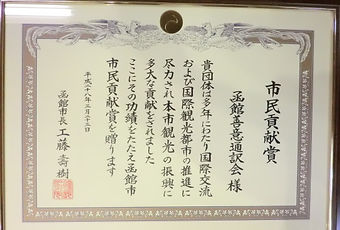 市民貢献賞
函館善意通訳会 様
貴団体は多年にわたり国際交流
および国際観光都市の推進に
尽力され本市観光の振興に
多大な貢献をされました
ここにその功績をたたえ函館市
市民貢献賞を贈ります
平成二十八年三月二十三日
函館市長 工藤壽樹